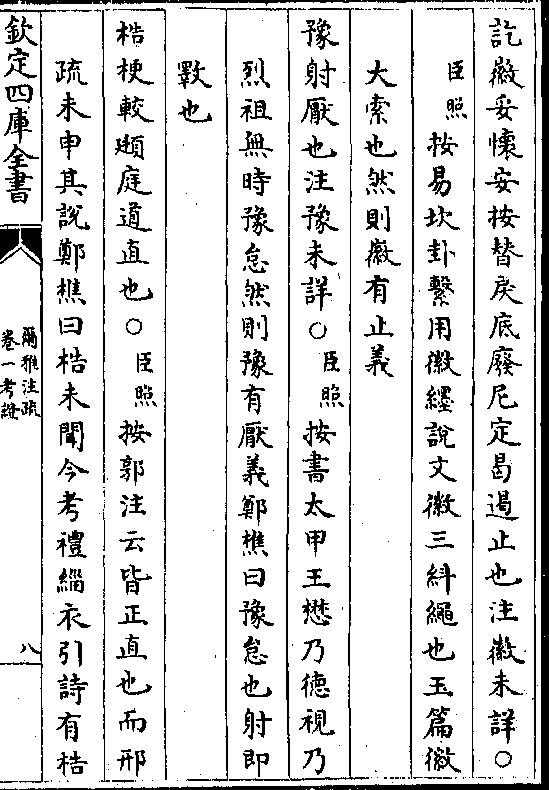 訖徽妥懷安按替戾底廢尼定曷遏止也注徽未詳○
臣照按易坎卦繫用徽纆說文徽三糾繩也玉篇徽
大索也然則徽有止義
豫射厭也注豫未詳○臣照按書太甲王懋乃德視乃
烈祖無時豫怠然則豫有厭義鄭樵曰豫怠也射即
斁也
梏梗較頲庭道直也○臣照按郭注云皆正直也而邢
疏未申其說鄭樵曰梏未聞今考禮緇衣引詩有梏
欽定四庫全書
爾雅注疏
卷一考證
八